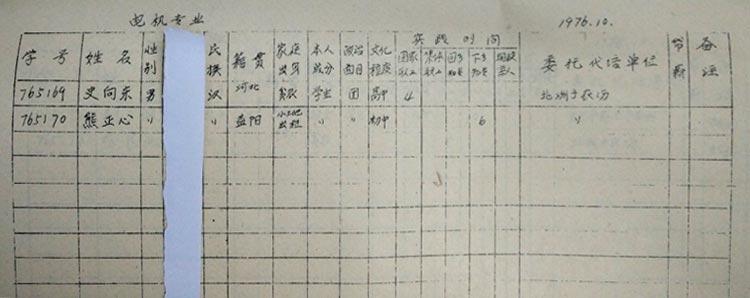 电机专业 1976.10.
实践时间
学号 姓名 性别 民族 籍贯 家庭出身 本人成分 政治面目 文化程度 国家职工 集体职工 回乡知青 下乡知青 委托代培单位 备注
765169 史向东 男 汉 河北 贫农 学生 团 高中 4 北洲子农场
765170 熊正心 〃 〃 益阳 〃 〃 初中 6 〃